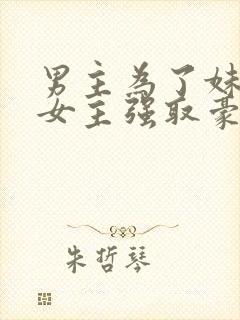 男主为了妹
女主强取豪
朱哲琴